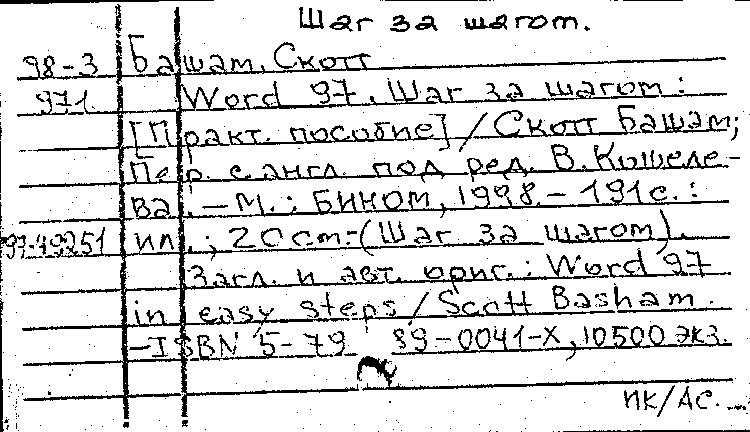 Шаг за шагом.
98-3 Башам, Скотт
971 Word 97. Шаг за шагом:
[Практ. пособие] / Скотт Башам;
Пер. с англ. под ред. В. Кошеле-
ва. - М.: БИНОМ, 1998. - 191с.:
97-49251 ил.; 20см-(Шаг за шагом).
Загл. и авт. ориг.: Word 97
in easy steps / Scott Basham.
-ISBN 5-79 89-0041-X, 10500 экз.
ПК/АС.